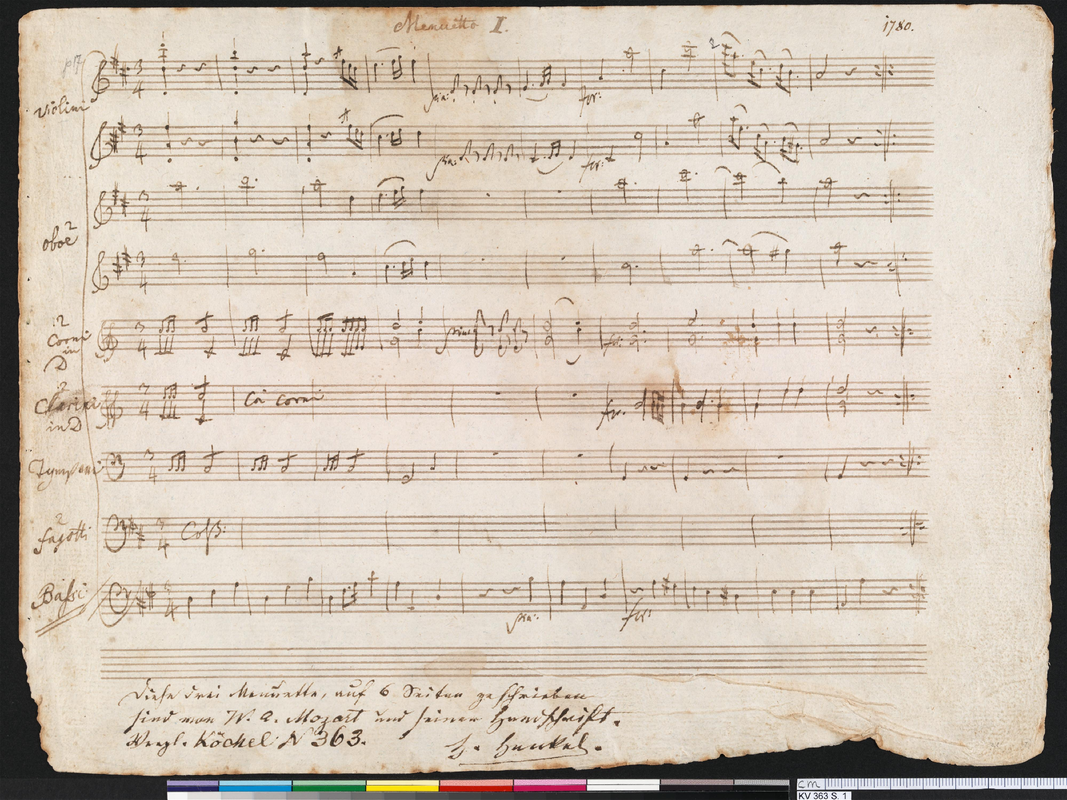 Menuetto I.
1780.
Violini
pia:
for:
pia:
for:
2
Oboe
2
Corni
in
D
pia:
for:
2
Clarini
in D
Coi Corni
for:
Tympani
2
Fagotti
Col B:
Bassi
pia:
for:
Diese drei Menuette, auf 6 Seiten geschrieben
sind von W. A. Mozart und seiner Handschrift.
Vergl. Köchel N 363.
H. Henkel.
cm
KV 363 S. 1